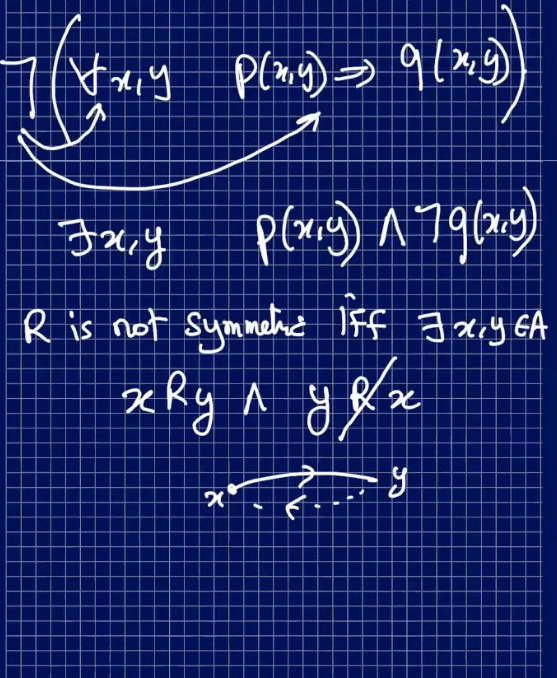 ¬(∀x,y p(x,y) ⇒ q(x,y))
∃x,y p(x,y) ∧ ¬q(x,y)
R is not symmetric iff ∃x,y ∈ A
xRy ∧ yR̸x
x y